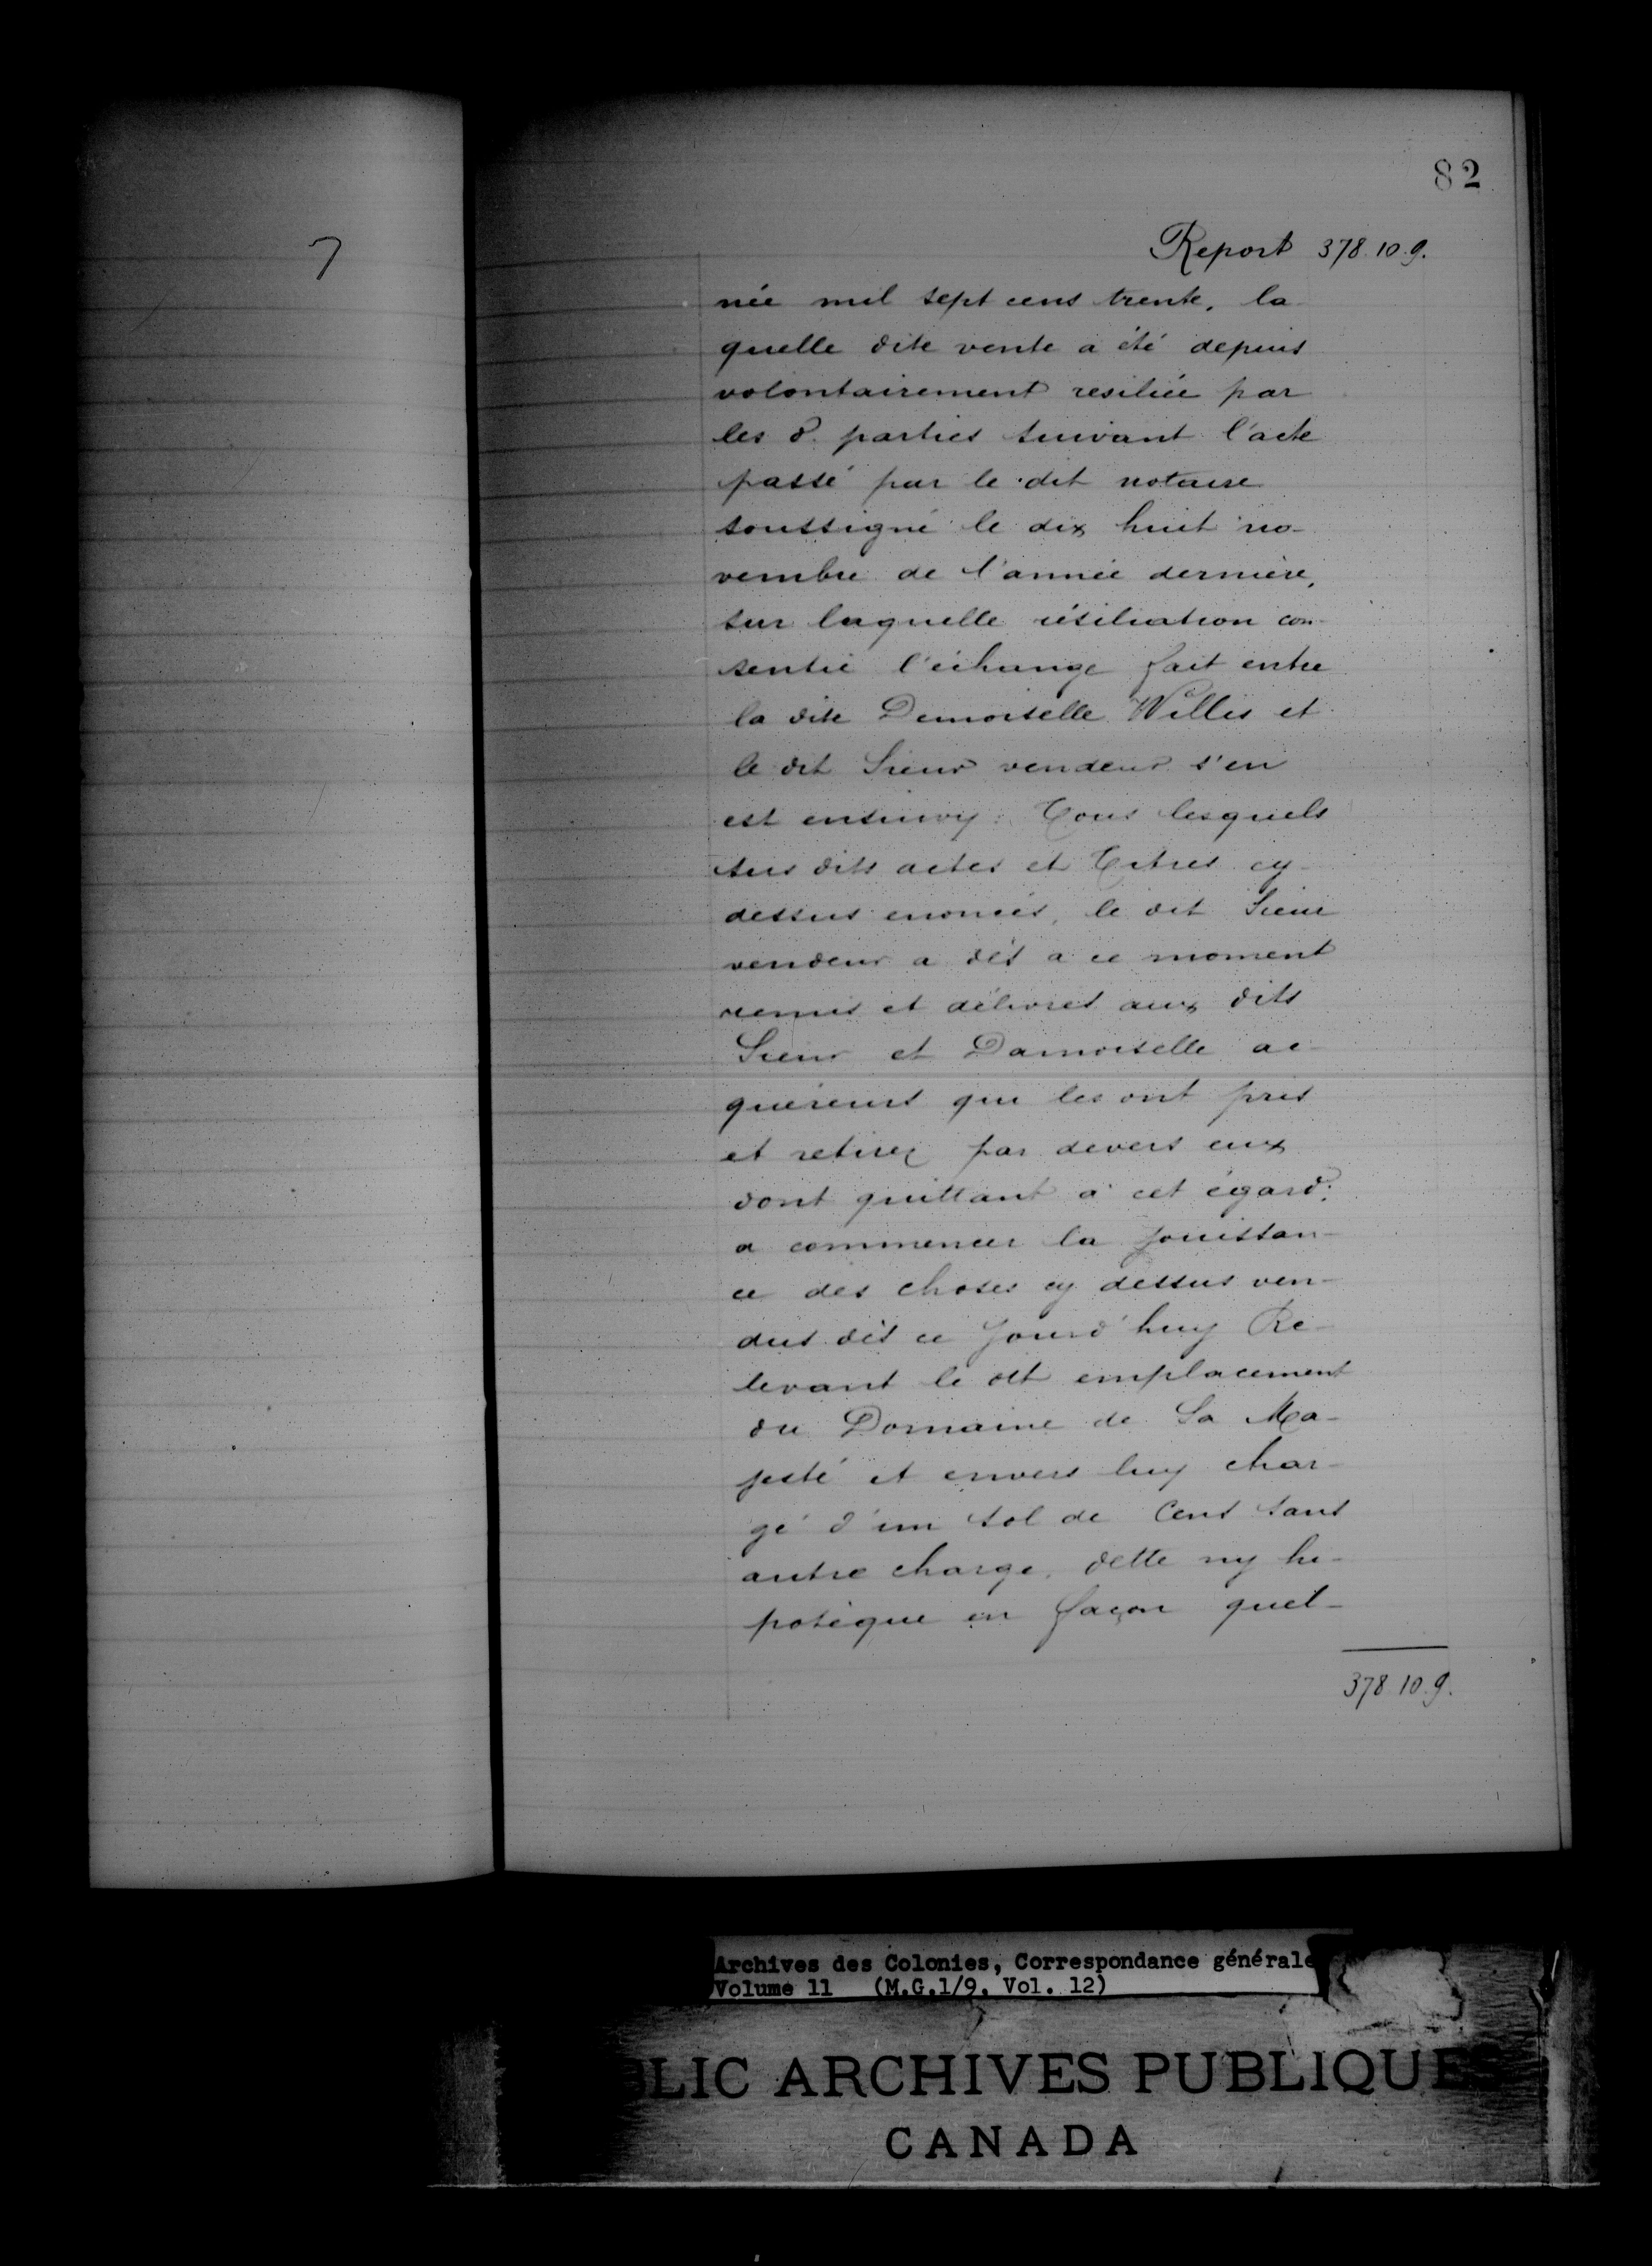 82
7
Report 378.10.9.
née mil sept cens trente, la
quelle dite vente a été depuis
volontairement resiliée par
les d. parties suivant l'acte
passé par le dit notaire
soussigné le dix huit no-
vembre de l'année dernière,
sur laquelle résiliation con-
sentie l'échange fait entre
la dite Demoiselle Willis et
le dit Sieur vendeur s'en
est ensuivy. Tous lesquels
sus dits actes et Titres cy-
dessus enoncés, le dit Sieur
vendeur a dès a ce moment
remis et délivrés aux dits
Sieur et Damoiselle ac-
quéreurs qui les ont pris
et retirez par devers eux
dont quittant à cet égard;
a commencer la jouissan-
ce des choses cy dessus ven-
dus dès ce jourd'huy Re-
levant le dt emplacement
du Domaine de Sa Ma-
jesté et envers luy char-
gé d'un sol de Cens sans
autre charge, dette ny hi-
potèque en façon quel-
378.10.9.
Archives des Colonies, Correspondance générale
Volume 11 (M.G.1/9, Vol. 12)
BLIC ARCHIVES PUBLIQUES
CANADA